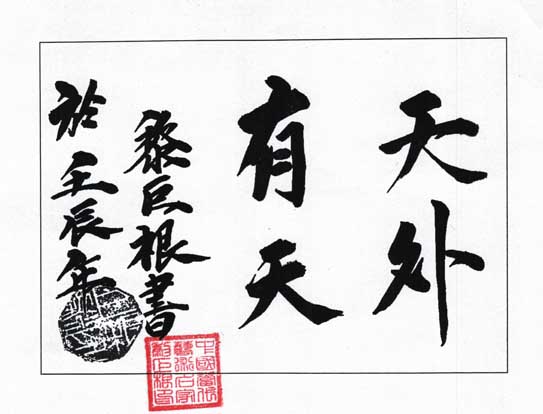 天外
有天
黎巨根書
於壬辰年
中國當代
藝術名家
黎巨根印